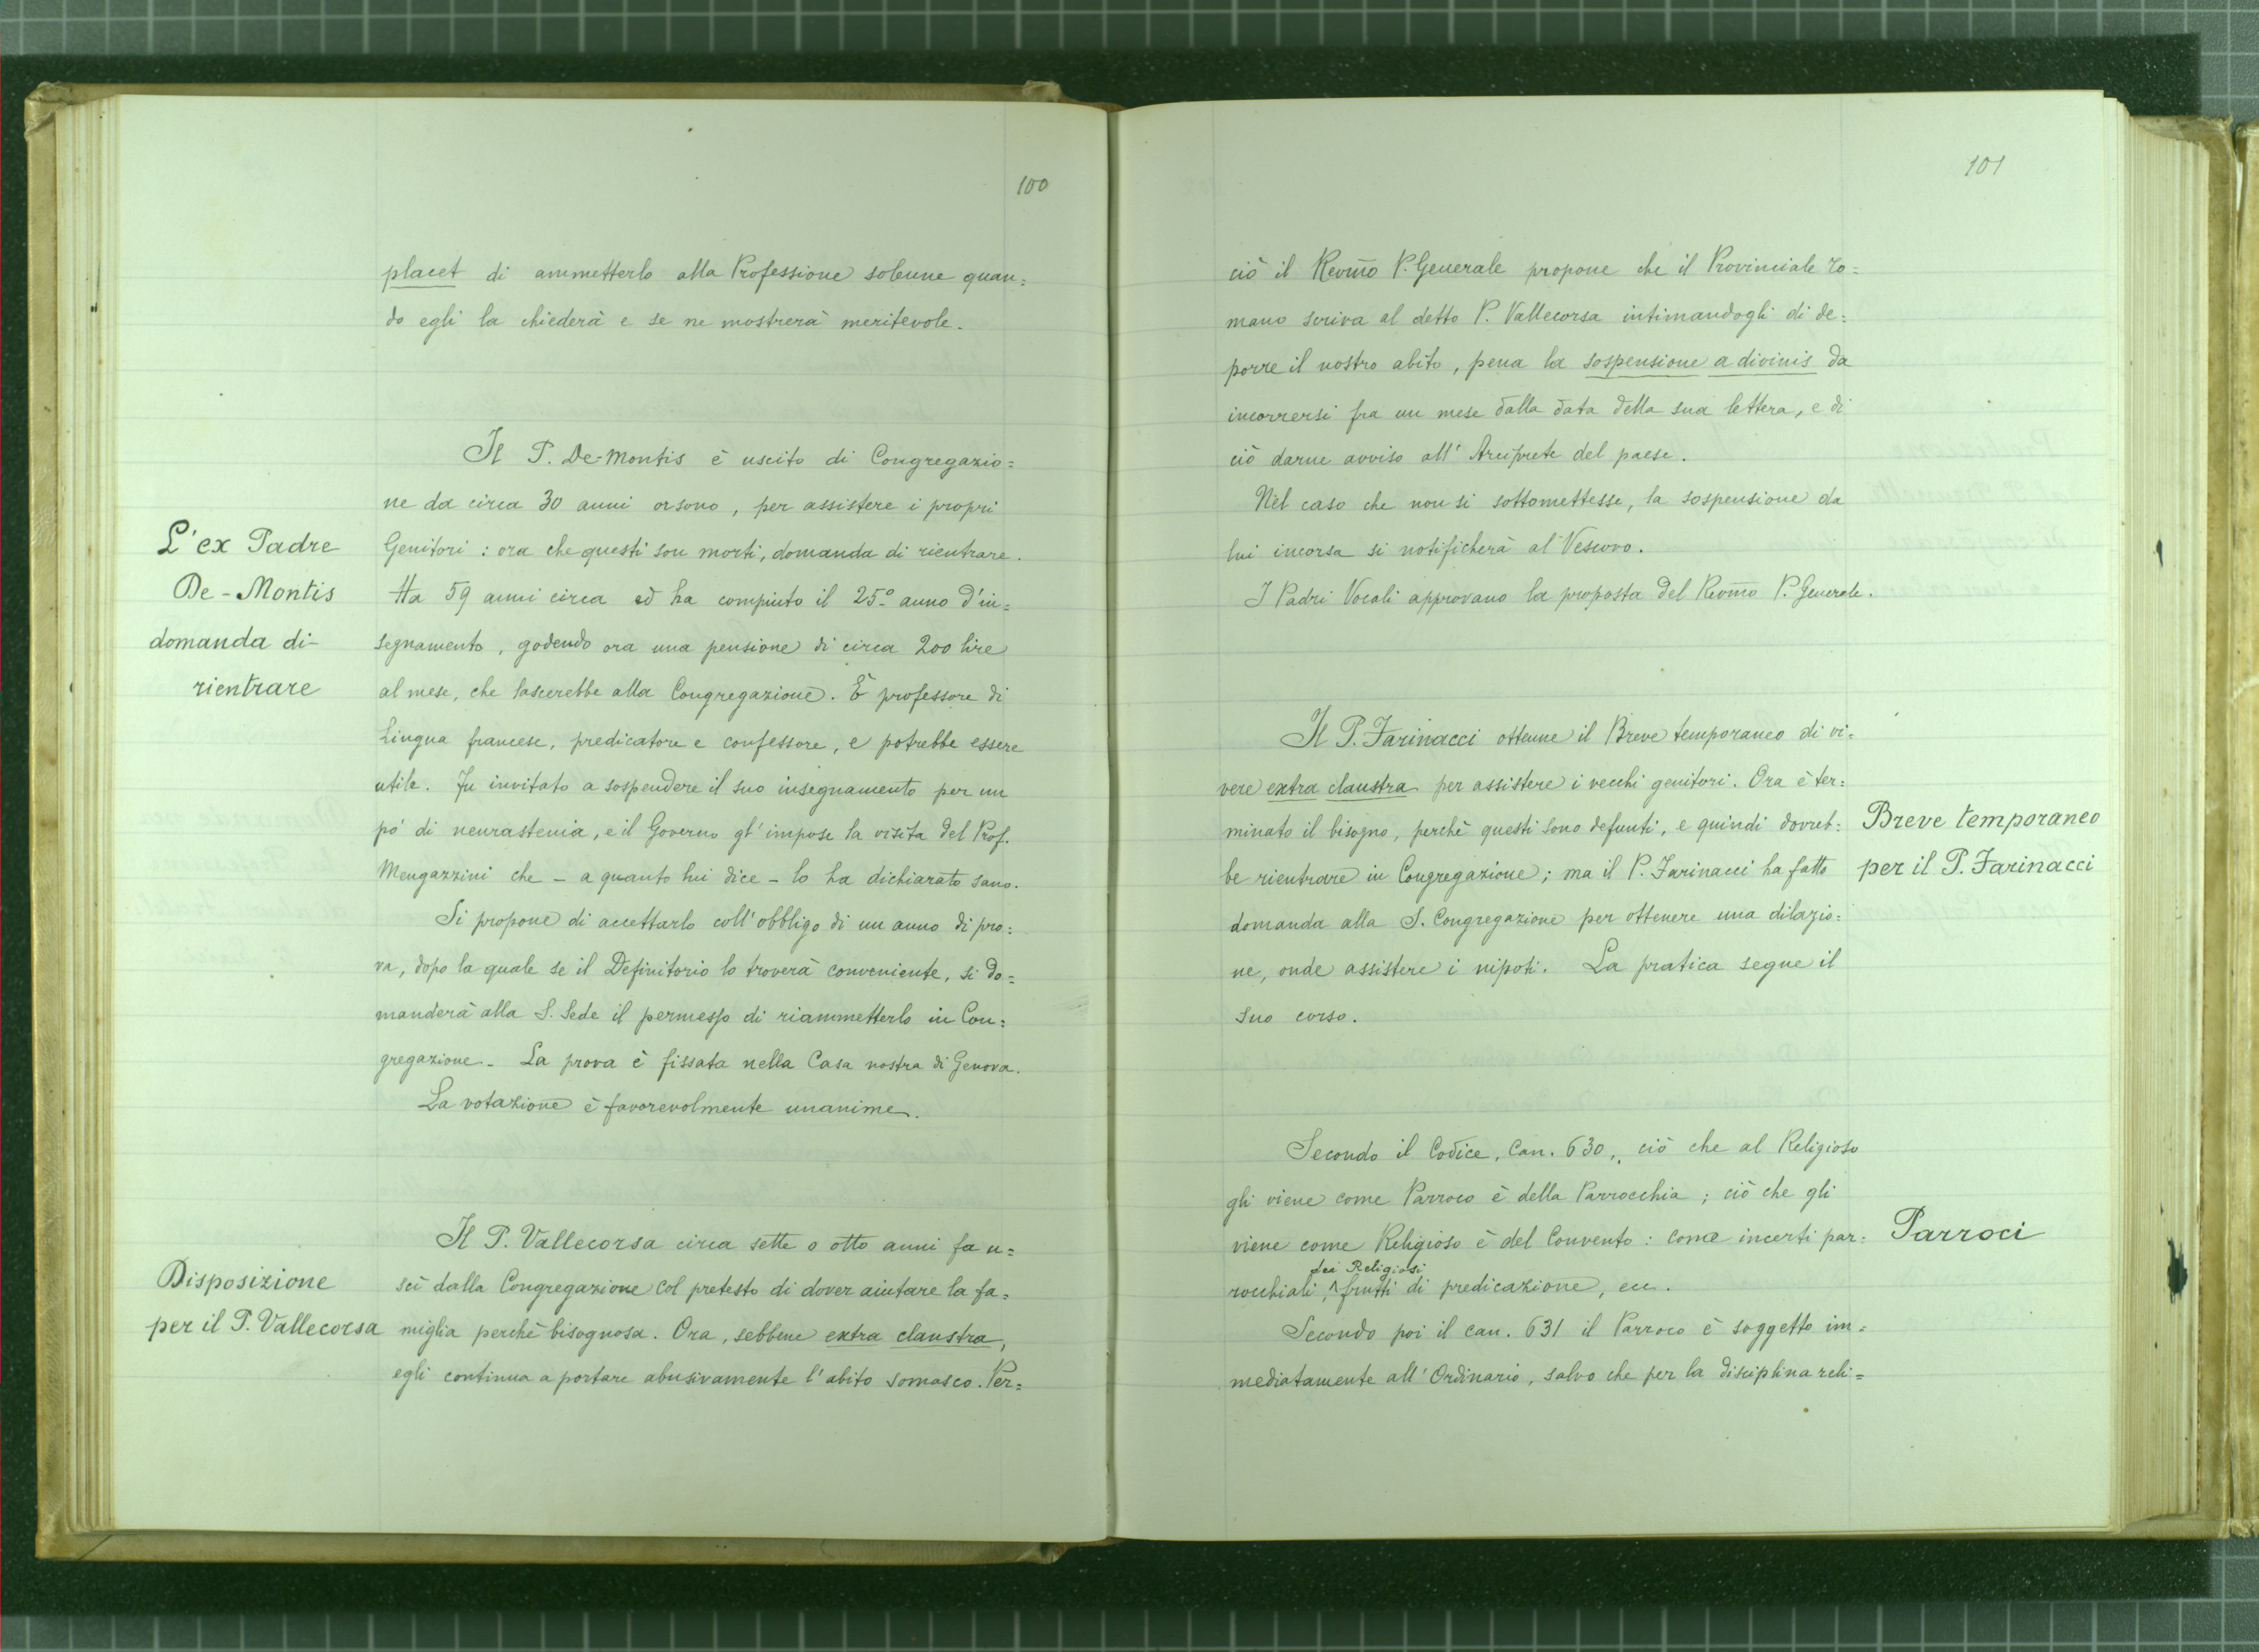 100
placet di ammetterlo alla Professione solenne quan=
do egli la chiederà e se ne mostrerà meritevole.
L'ex Padre
De-Montis
domanda di
rientrare
Il P. De-Montis è uscito di Congregazio=
ne da circa 30 anni orsono, per assistere i propri
Genitori : ora che questi son morti, domanda di rientrare.
Ha 59 anni circa ed ha compiuto il 25º anno d'in=
segnamento, godendo ora una pensione di circa 200 lire
al mese, che lascerebbe alla Congregazione. È professore di
Lingua francese, predicatore e confessore, e potrebbe essere
utile. Fu invitato a sospendere il suo insegnamento per un
pò di neurastenia, e il Governo gl'impose la visita del Prof.
Mengazzini che - a quanto lui dice - lo ha dichiarato sano.
Si propone di accettarlo coll'obbligo di un anno di pro=
va, dopo la quale se il Definitorio lo troverà conveniente, si do=
manderà alla S. Sede il permesso di riammetterlo in Con=
gregazione - La prova è fissata nella Casa nostra di Genova.
La votazione è favorevolmente unanime.
Disposizione
per il P. Vallecorsa
Il P. Vallecorsa circa sette o otto anni fa u=
scì dalla Congregazione col pretesto di dover aiutare la fa=
miglia perchè bisognosa. Ora, sebbene extra claustra,
egli continua a portare abusivamente l'abito somasco. Per=
101
ciò il Revm̃o P. Generale propone che il Provinciale ro=
mano scriva al detto P. Vallecorsa intimandogli di de=
porre il nostro abito, pena la sospensione a divinis da
incorrersi fra un mese dalla data della sua lettera, e di
ciò darne avviso all'Arciprete del paese.
Nel caso che non si sottomettesse, la sospensione da
lui incorsa si notificherà al Vescovo.
I Padri Vocali approvano la proposta del Revm̃o P. Generale.
Il P. Farinacci ottenne il Breve temporaneo di vi=
vere extra claustra per assistere i vecchi genitori. Ora è ter=
minato il bisogno, perchè questi sono defunti, e quindi dovreb=
be rientrare in Congregazione; ma il P. Farinacci ha fatto
domanda alla S. Congregazione per ottenere una dilazio=
ne, onde assistere i nipoti. La pratica segue il
suo corso.
Breve temporaneo
per il P. Farinacci
Secondo il Codice, Can. 630, ciò che al Religioso
gli viene come Parroco è della Parrocchia ; ciò che gli
viene come Religioso è del Convento : come incerti par=
dei Religiosi
rocchiali, ^ frutti di predicazione, ecc.
Secondo poi il can. 631 il Parroco è soggetto im=
mediatamente all'Ordinario, salvo che per la disciplina reli=
Parroci